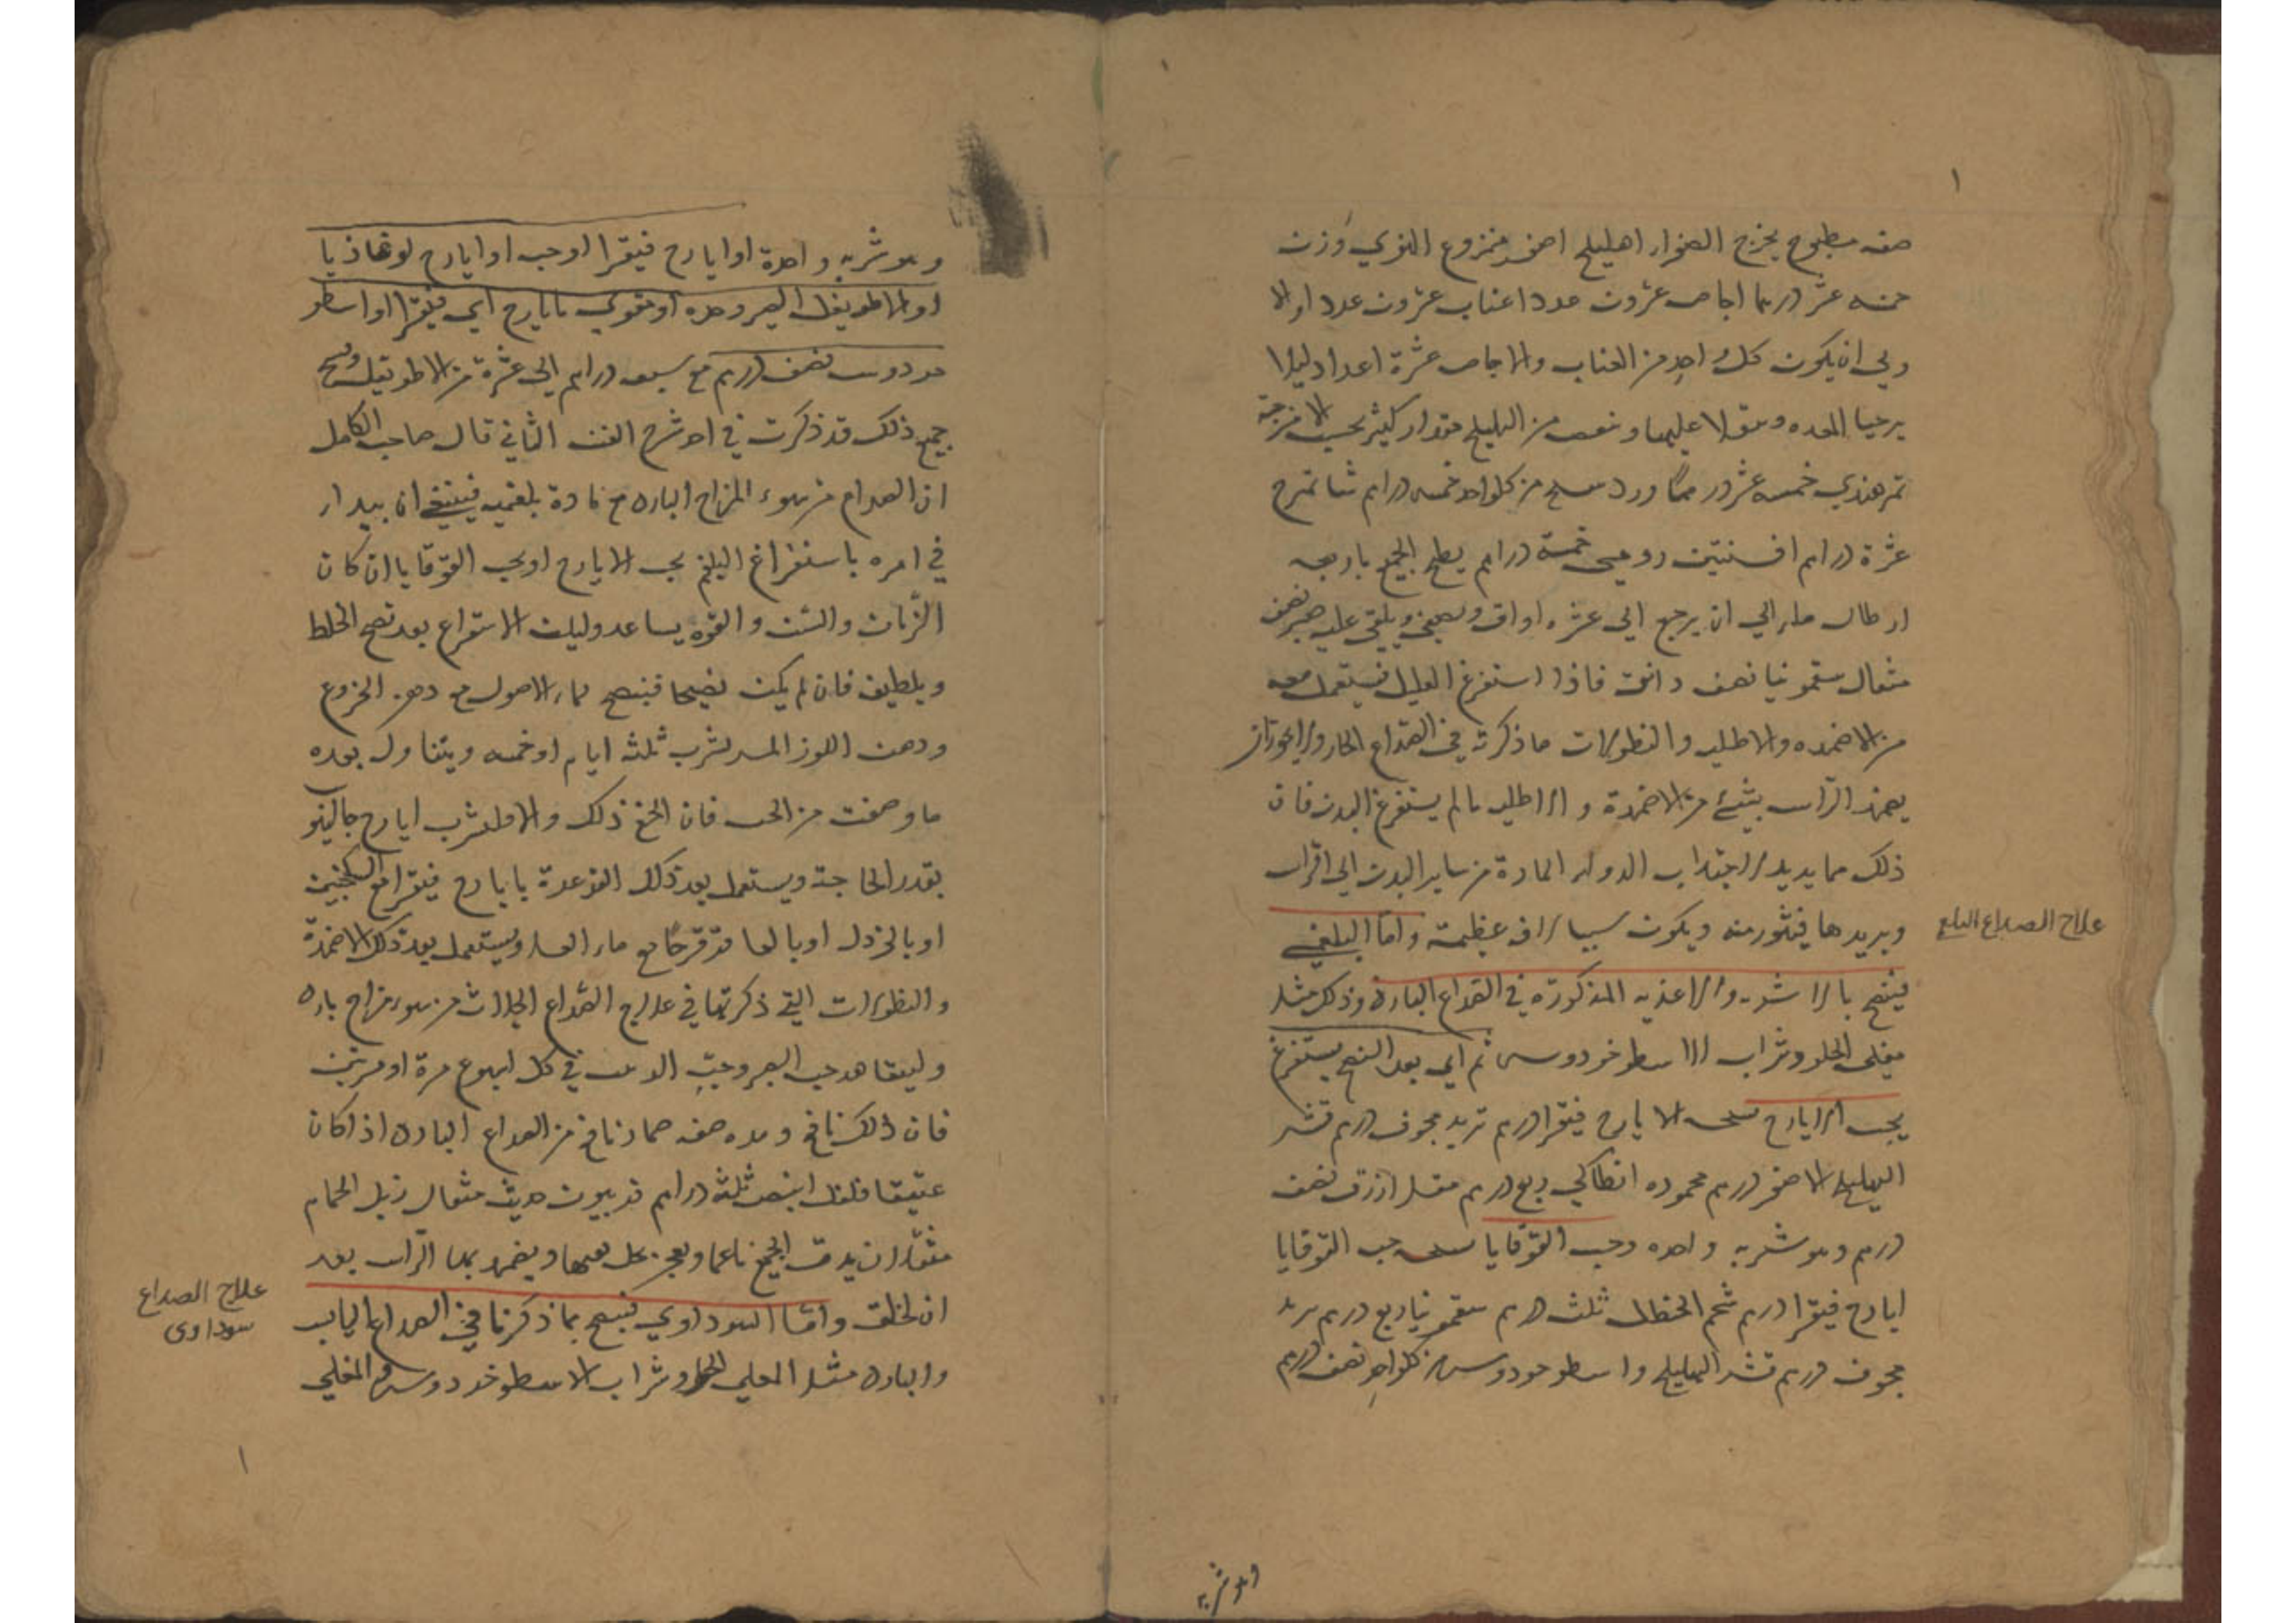 ١
صفه مطبوخ يخرج الصفراء اهليلج اصفر منزوع النوي وزن
خمسه عشر درهما اجاص عشرون عددا عناب عشرون عددا اولا
ان يكون كل واحد من العناب والاجاص عشرة اعداد ليلا
يرخيا المعده ويثقلا عليها وينقص من الهليلج مقدار كثير بحسب الامزجة
تمر هندي خمسه عشر درهما ورد من كلواحد خمسه دراهم شاهترج
عشرة دراهم افسنتين رومي خمسة دراهم يطبخ الجميع باربعه
ارطال ماء الي ان يرجع الي عشره اواق ويصفي ويلقي عليه صبر نصف
مثقال سقمونيا نصف دانق فاذا استفرغ العليل فيستعمل معه
من الاضمده والاطليه والنطولات ما ذكرته في الصداع الحار ولا يجوز ان
يضمد الراس بشئ من الاضمدة والاطليه ما لم يستفرغ البدن فان
ذلك مما يديد لاجتذاب الدواء المادة من ساير البدن الي الراس
ويريدها فيثور منه ويكون سببا لافه عظيمة واما البلغمي
علاج الصداع البلغمي
فينضج بالاشربه والاغذيه المذكورة في الصداع البارد وذلك مثل
مغلي الحلو وشراب الاسطوخودوس ثم اي بعد النضج يستفرغ
بحب الايارج نسخه الايارج فيقرا درهم تربد مجوف درهم قشر
الهليلج الاصفر درهم محموده انطاكي ربع درهم مقل ازرق نصف
درهم وهو شربه واحده وحب القوقايا نسخه حب القوقايا
ايارج فيقرا درهم شحم الحنظل ثلث درهم سقمونيا ربع درهم تربد
مجوف درهم قشر الهليلج واسطوخودوس من كلواحد نصف درهم
وهو شربه
وهو شربه واحدة او ايارج فيقرا او حب او ايارج لوغاذيا
او الاطريفل الصبر وحده او مقوي بايارج اي فيقرا او اسطو
خودوس نصف درهم مع سبعه دراهم الي عشرة من الاطريفل ونسخ
جميع ذلك قد ذكرت في اخر شرح الفن الثاني قال صاحب الكامل
ان الصداع من سوء المزاج البارد مع مادة بلغميه فينبغي ان يبدا
في امره باستفراغ البلغم بحب الايارج او بحب القوقايا ان كان
الزمان والسن والقوه يساعد وليكن الاستفراغ بعد نضج الخلط
وتلطيف فان لم يكن نضيجا فينضج بماء الاصول مع دهن الخروع
ودهن اللوز المر يشرب ثلثه ايام او خمسه ويتناول بعده
ما وصفت من الحب فان انجح ذلك والا فليشرب ايارج جالينو
بقدر الحاجة ويستعمل بعد ذلك الغرغرة بايارج فيقرا مع السكنجبين
او بالخردل او بالعاقرقرحا مع ماء العسل ويستعمل بعد ذلك الاضمدة
والنطولات التي ذكرتها في علاج الصداع الحادث من سوء مزاج بارد
وليتعاهد حب الصبر وحب الذهب في كل اسبوع مرة او مرتين
فان ذلك نافع وهذه صفه ضماد نافع من الصداع البارد اذا كان
عتيقا فلفل ابيض ثلثة دراهم فربيون حديث مثقال زبل الحمام
مثقالان يدق الجميع ناعما ويعجن بخل ويضمد بها الراس بعد
ان يحلق واما السوداوي فينضج بما ذكرنا في الصداع اليابس
علاج الصداع
سوداوى
والبارد مثل المغلي الحلو وشراب الاسطوخودوس والمغلي
١